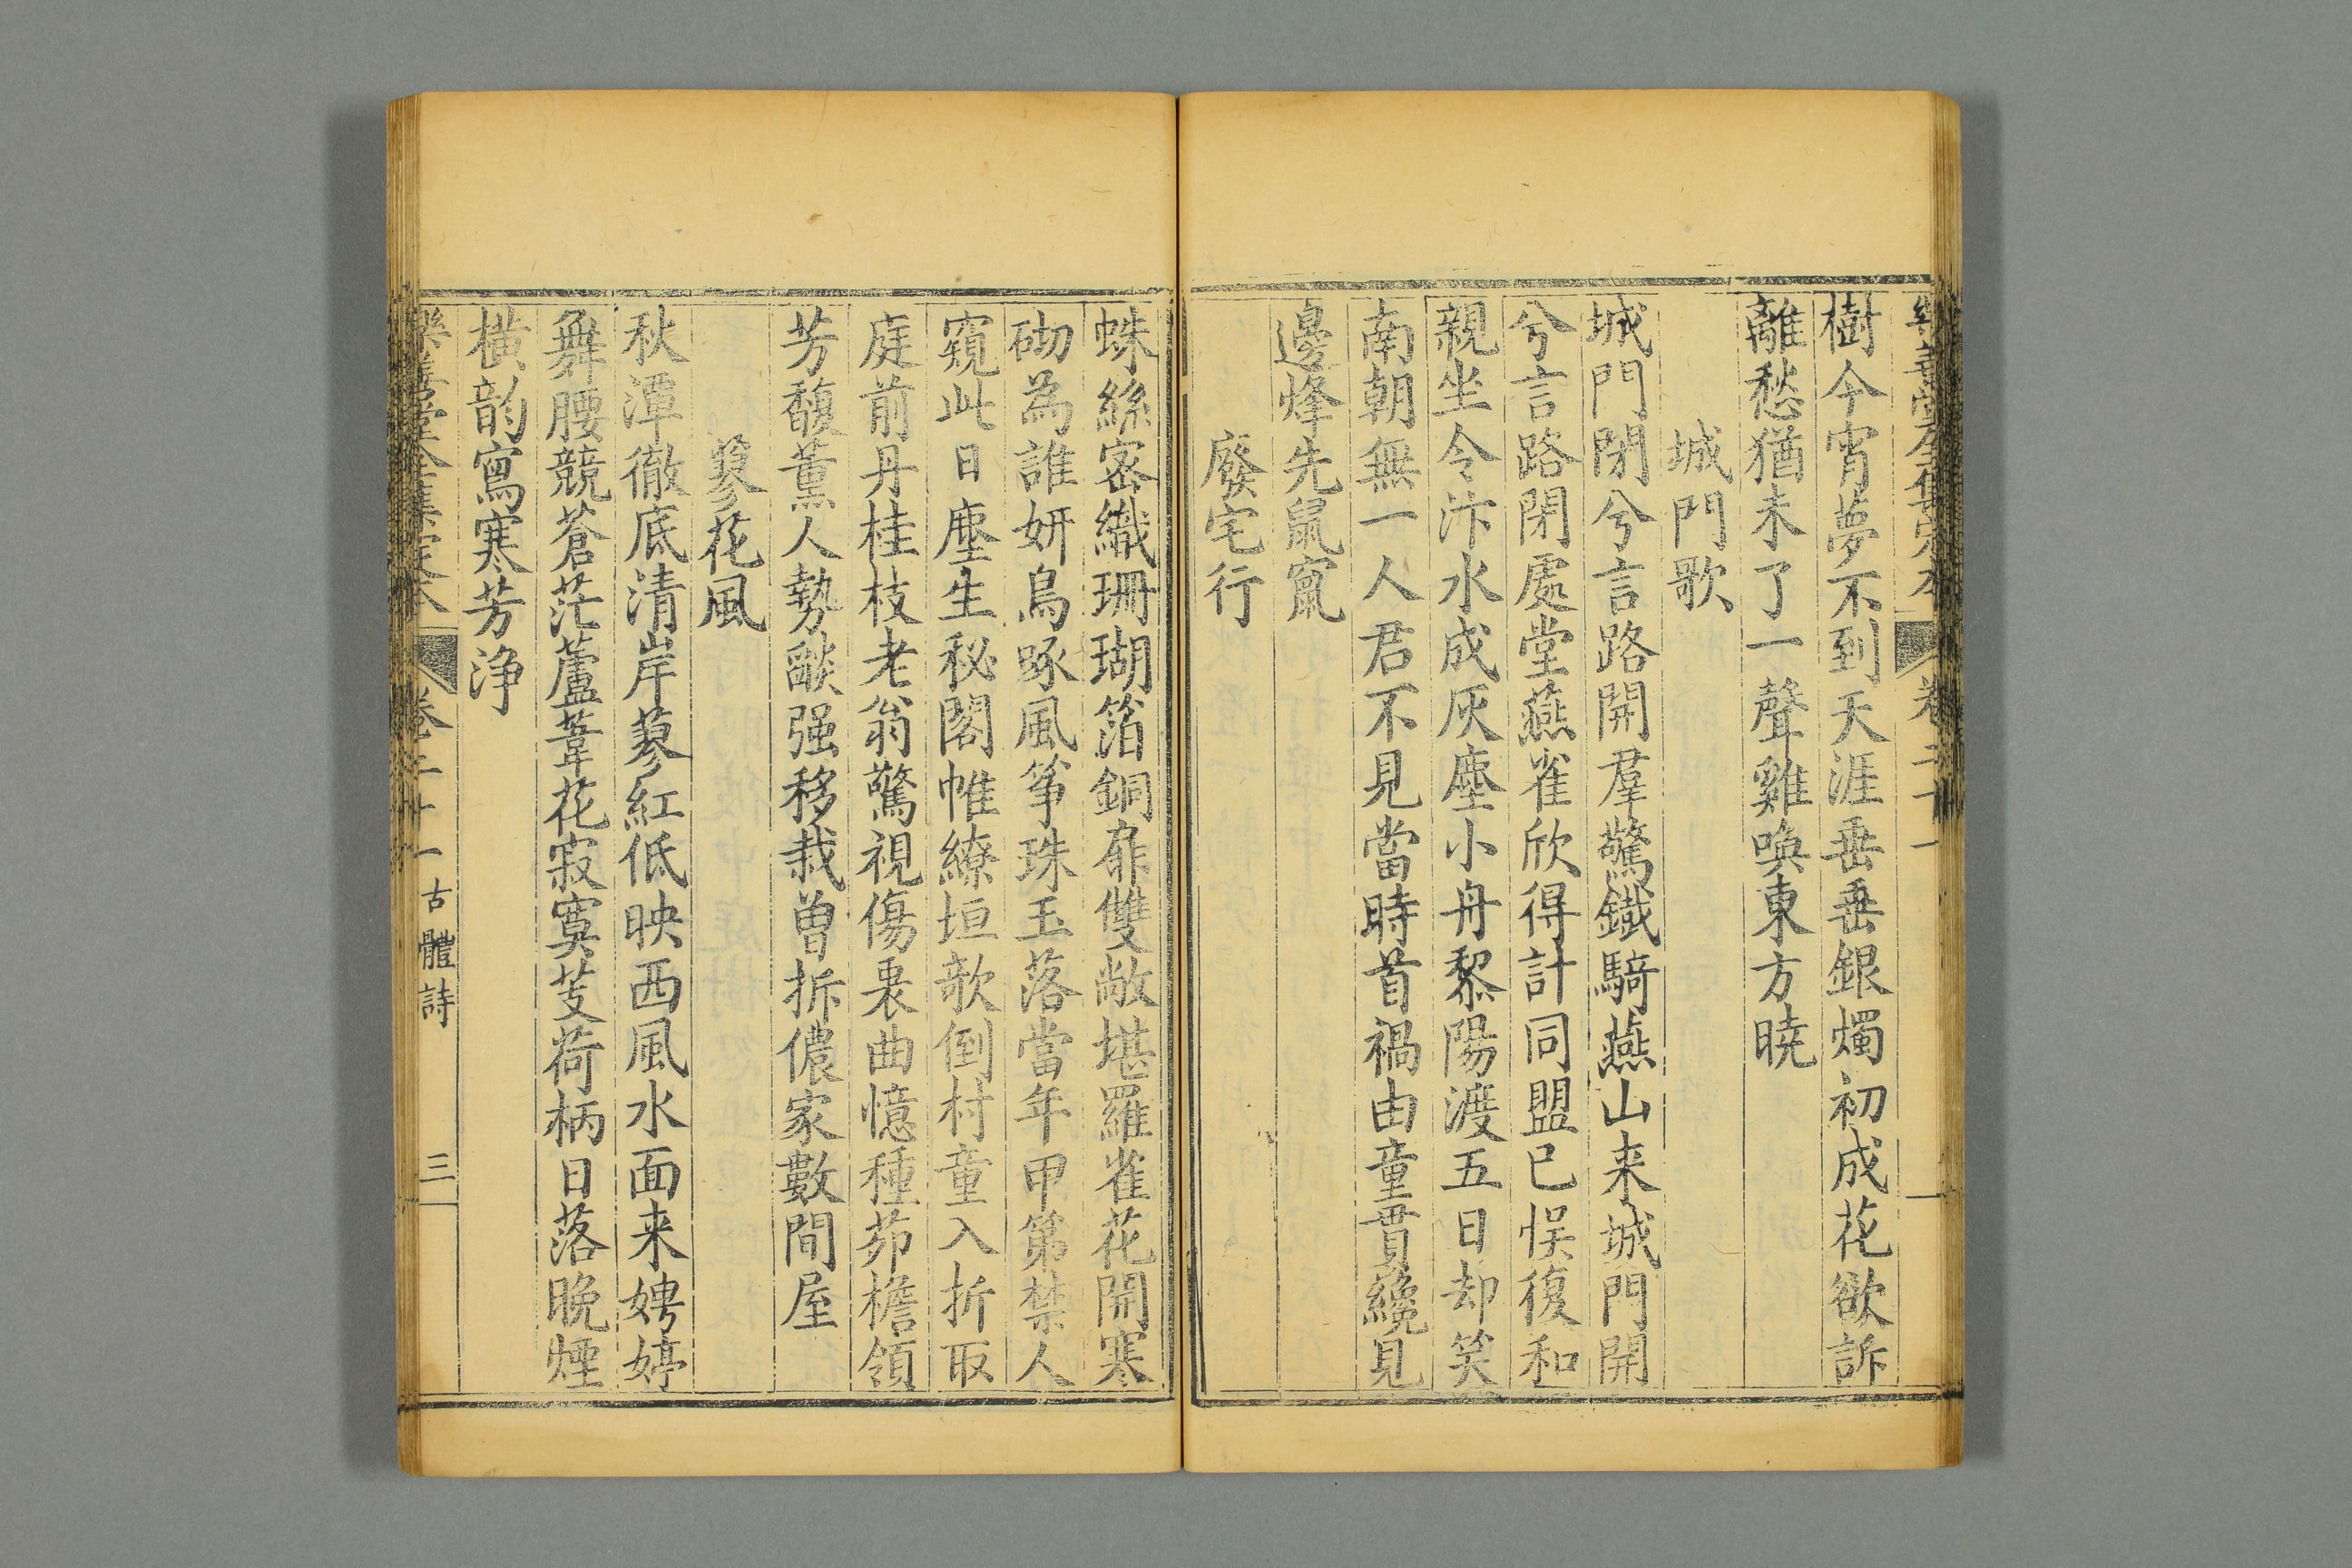 樂善堂全集定本 卷二十一
樹今宵夢不到天涯垂垂銀燭初成花欲訴
離愁猶未了一聲雞喚東方曉
城門歌
城門閉兮言路開羣驚鐵騎燕山来城門開
兮言路閉處堂燕雀欣得計同盟已悮復和
親坐令汴水成灰塵小舟黎陽渡五日却笑
南朝無一人君不見當時首禍由童貫纔見
邊烽先鼠竄
廢宅行
蛛絲密織珊瑚箔銅扉雙敞堪羅雀花開寒
砌為誰妍鳥啄風筝珠玉落當年甲第禁人
窺此日塵生秘閣帷繚垣欹倒村童入折取
庭前丹桂枝老翁驚視傷衷曲憶種茆檐領
芳馥薰人勢燄强移栽曽拆儂家數間屋
蓼花風
秋潭徹底清岸蓼紅低映西風水面来娉婷
舞腰競蒼茫蘆葦花寂寞芰荷柄日落晚煙
横韵寫寒芳浄
樂善堂全集定本 卷二十一 古體詩 三